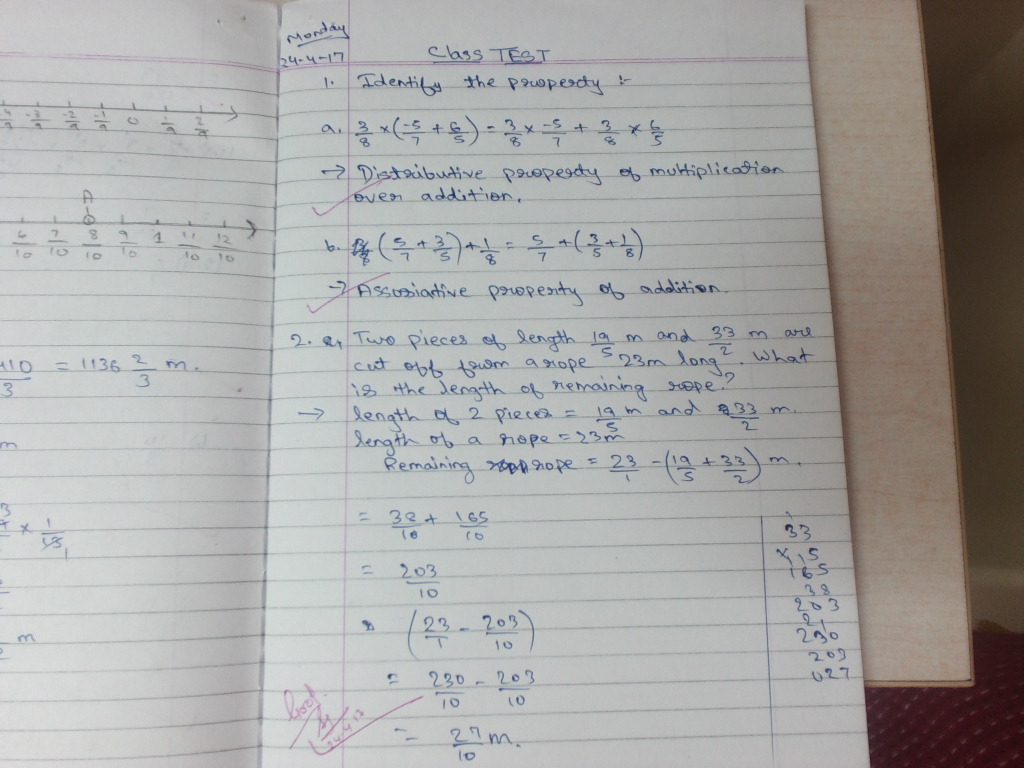 -3/9 -2/9 -1/9 0 1/9 2/9
A
6/10 7/10 8/10 9/10 1 11/10 12/10
= 1136 2/3 m.
m
× 1/15
m
Monday
24-4-17
Class TEST
1. Identify the property :-
a. 3/8 × (-5/7 + 6/5) = 3/8 × -5/7 + 3/8 × 6/5
→ Distributive property of multiplication
over addition.
b. (5/7 + 3/5) + 1/8 = 5/7 + (3/5 + 1/8)
→ Associative property of addition.
2. a, Two pieces of length 19/5 m and 33/2 m are
cut off from a rope 23m long. What
is the length of remaining rope?
→ length of 2 pieces = 19/5 m and 33/2 m.
length of a rope = 23m
Remaining rope = 23/1 - (19/5 + 33/2) m.
= 38/10 + 165/10
= 203/10
(23/1 - 203/10)
= 230/10 - 203/10
= 27/10 m.
33
×15
165
38
203
21
230
203
027
Good
24.4.17